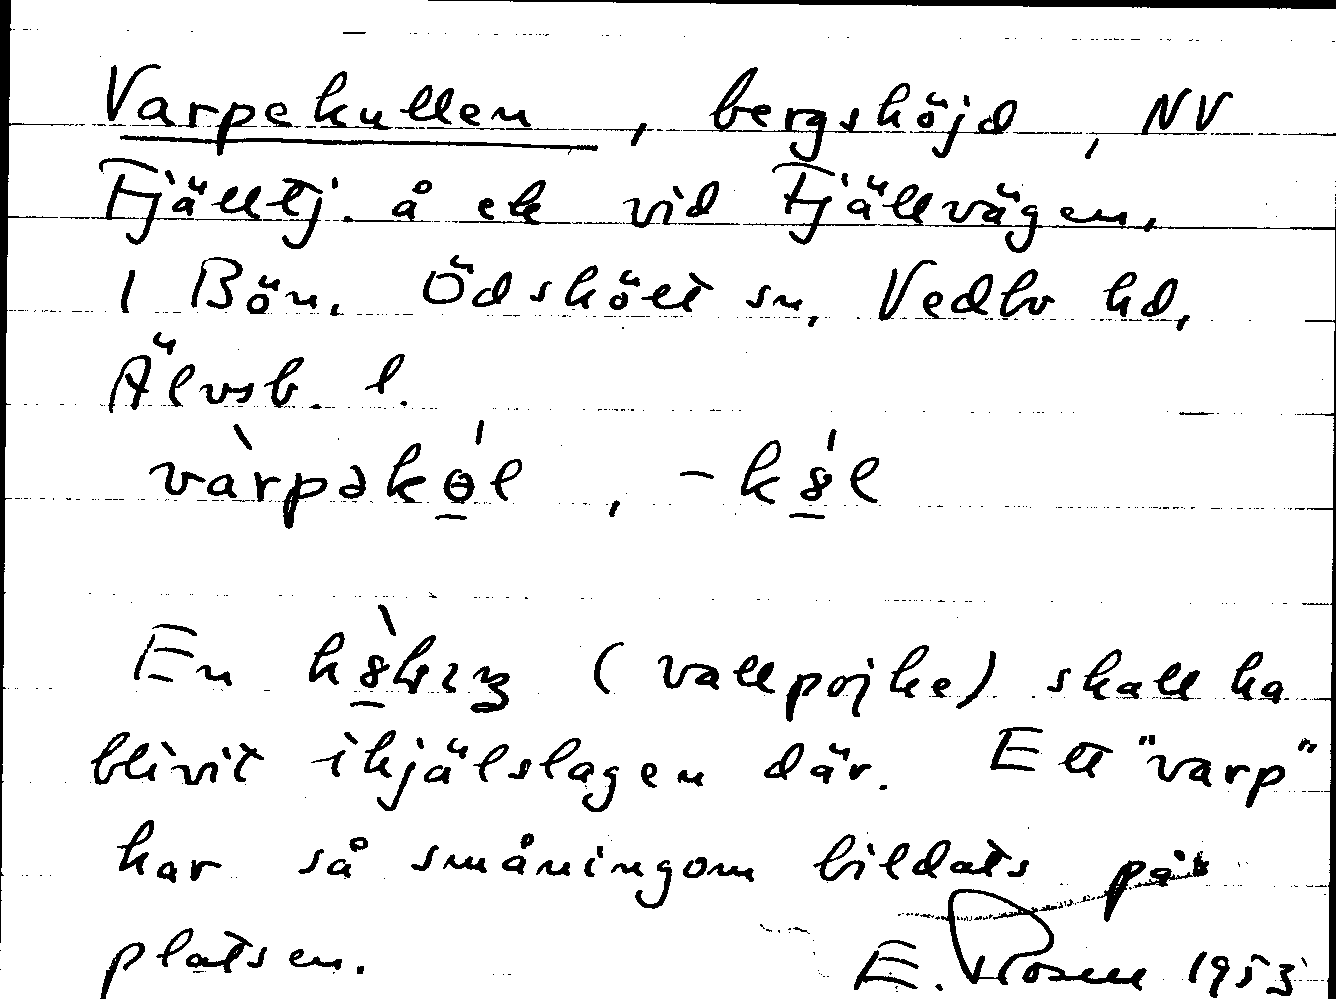 Varpekullen, bergshöjd, NV
Fjälltj. å ek vid Fjällvägen,
1 Bön. Ödskölt sn, Vedbo hd,
Älvsb. l.
vàrpəkɵ̱́l, -k8̱́l
En (vallpojke) skall ha
blivit ihjälslagen där. Ett "varp"
har så småningom bildats på
platsen. E. Rosell 1953